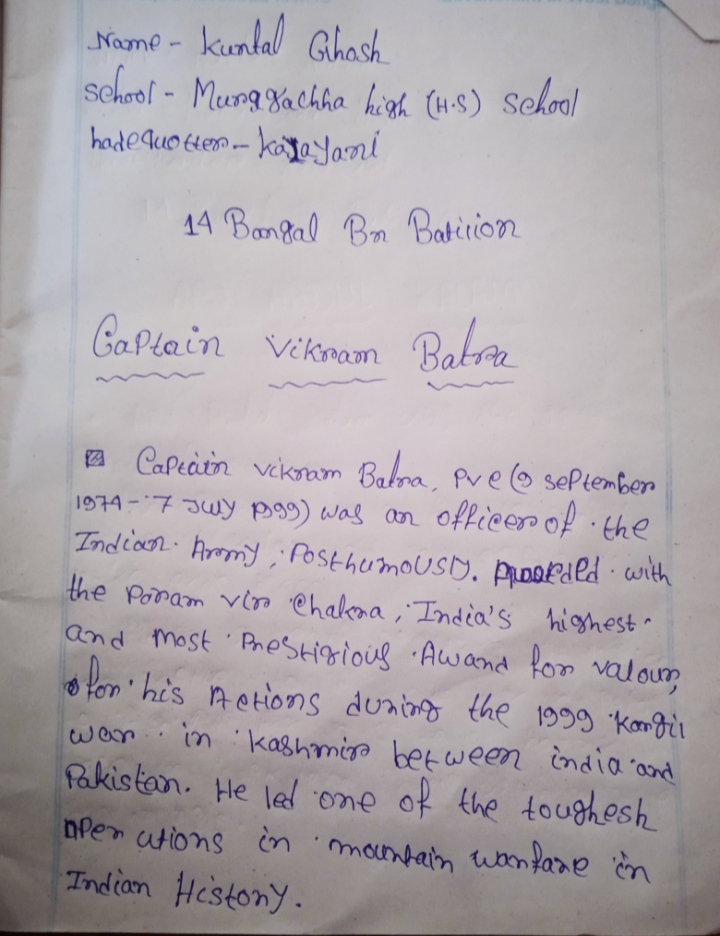 Name - Kuntal Ghosh
School - Muragachha high (H.S) School
hadequotter - Kalayani
14 Bangal Bn Batirion
Captain Vikram Batra
Captain Vikram Batra, PVC (9 September
1974 - 7 July 1999) was an officer of the
Indian Army, Posthumously. with
the Param Vir Chakra, India's highest
and most Prestigious Award for valour,
for his Actions during the 1999 Kargil
war in Kashmir between india and
Pakistan. He led one of the toughesh
operations in mountain warfare in
Indian History.